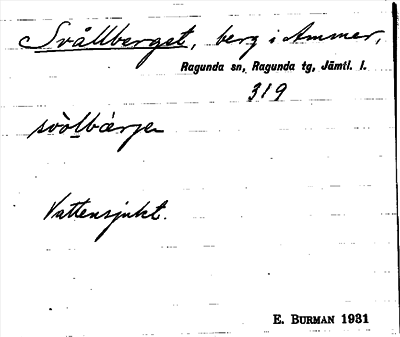 Svållberget, berg i Ammer,
Ragunda sn, Ragunda tg, Jämtl. l.
319
svòlbǽrjen
Vattensjukt.
E. BURMAN 1931